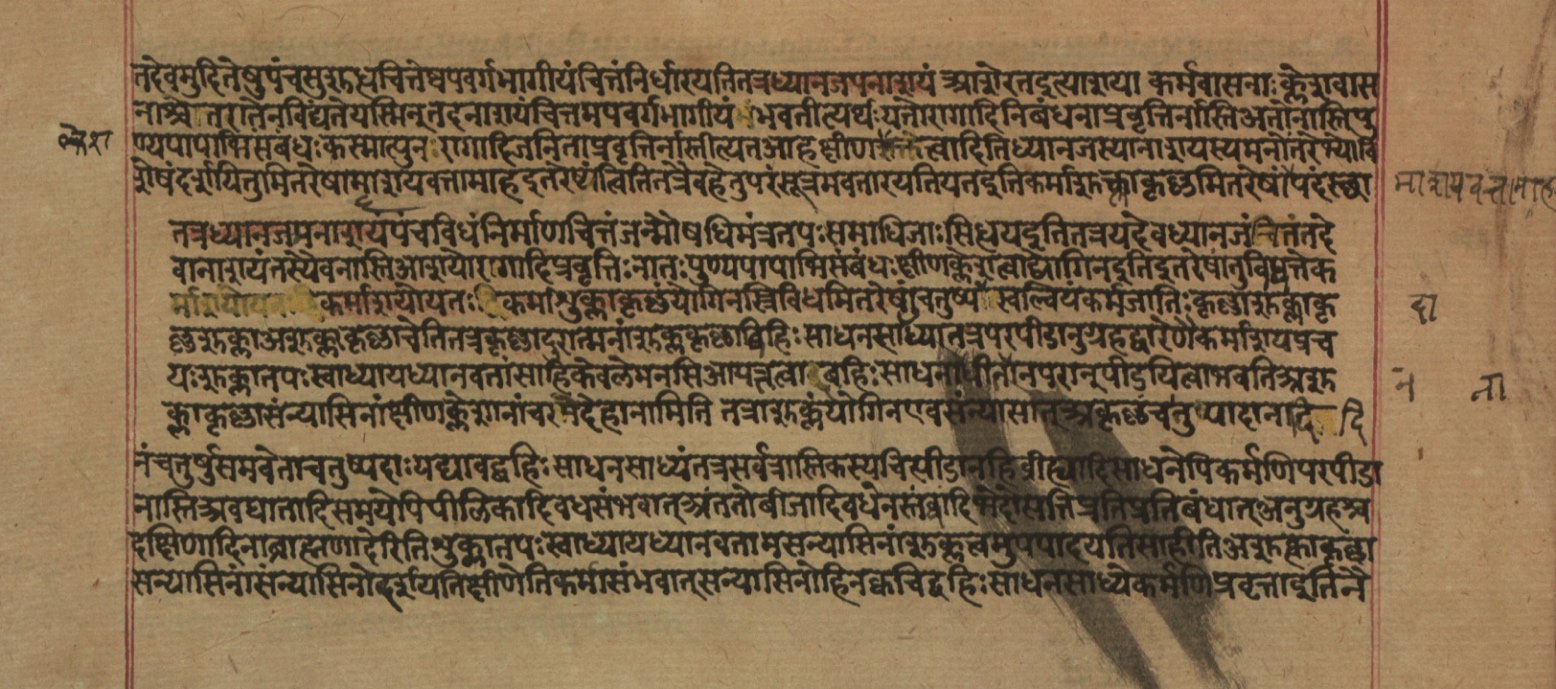 तदेवमुदितेषुपंचसुसिद्धचित्तेष्वपवर्गभागीयंचित्तंनिर्धारयतितत्रध्यानजमनाशयं आशेरतइत्याशया कर्मवासनाःक्लेशवास
नाश्च तएतेनविद्यंतेयस्मिन्तदनाशयंचित्तमपवर्गभागीयं भवतीत्यर्थःयतोरागादिनिबंधनाप्रवृत्तिर्नास्तिअतोनास्तिपु
क्लेश
ण्यपापाभिसंबंधःकस्मात्पुनःरागादिजनिताप्रवृत्तिर्नास्तीत्यतआहक्षीण त्वादितिध्यानजस्यानाशयस्यमनोंतरेभ्योवि
शेषंदर्शयितुमितरेषामाशयवत्तामाहइतरेषांत्वितितत्रैवहेतुपरंसूत्रमवतारयतियतइतिकर्माशुक्लाकृष्णमितरेषां पदंस्त्वा
माशयवत्तामाह
तत्रध्यानजमनाशयंपंचविधंनिर्माणचित्तंजन्मौषधिमंत्रतपःसमाधिजाःसिद्धयइतितत्रयदेवध्यानजंचित्तंतदे
वानाशयंतस्यैवनास्तिआशयोरागादिप्रवृत्तिःनातःपुण्यपापाभिसंबंधःक्षीणक्लेशत्वाद्योगिनइतिइतरेषांतुविद्यतेक
र्माशयोयतः कर्माशयोयतः कर्माशुक्लाकृष्णंयोगिनस्त्रिविधमितरेषांचतुष्प स्वल्वियंकर्मजातिःकृष्णाशुक्लाकृ
दा
ष्णशुक्लाअशुक्लाकृष्णाचेतितत्रकृष्णादुरात्मनांशुक्लकृष्णाबहिःसाधनसाध्यातत्रपरपीडानुग्रहद्वारेणैकर्माशयप्रच
यःशुक्लातपःस्वाध्यायध्यानवतांसाहिकेवलेमनसिआयत्तत्वा बहिःसाधनाधीनानपरान्पीडयित्वाभवतिअशु
न ना
क्लाकृष्णासंन्यासिनांक्षीणक्लेशानांचरमदेहानामिति तत्राशुक्लंयोगिनएवसंन्यासात्अकृष्णंचतु पादाना दि
नंचतुर्षुसमवेताचतुष्पदाःयद्यावद्बहिःसाधनसाध्यंतत्रसर्वत्रास्तिकस्यचित्पीडानहिव्रीह्यादिसाधनेपिकर्मणिपरपीडा
नास्तिअवघातादिसमयेपिपीलिकादिवधसंभवात्अंततोबीजादिवधेनस्तंबादिभेदोत्पत्तिप्रतिप्रतिबंधात्अनुग्रहश्च
दक्षिणादिनाब्राह्मणादेरितिशुक्लातपःस्वाध्यायध्यानवतामसन्यासिनांशुक्लत्वमुपपादयतिसाहीतिअशुक्लाकृष्णा
सन्यासिनांसंन्यासिनोदर्शयतिक्षीणेतिकर्मासंभवात्सन्यासिनोहिनक्वचिद्बहिःसाधनसाध्येकर्मणिप्रवृत्ताइतिनै